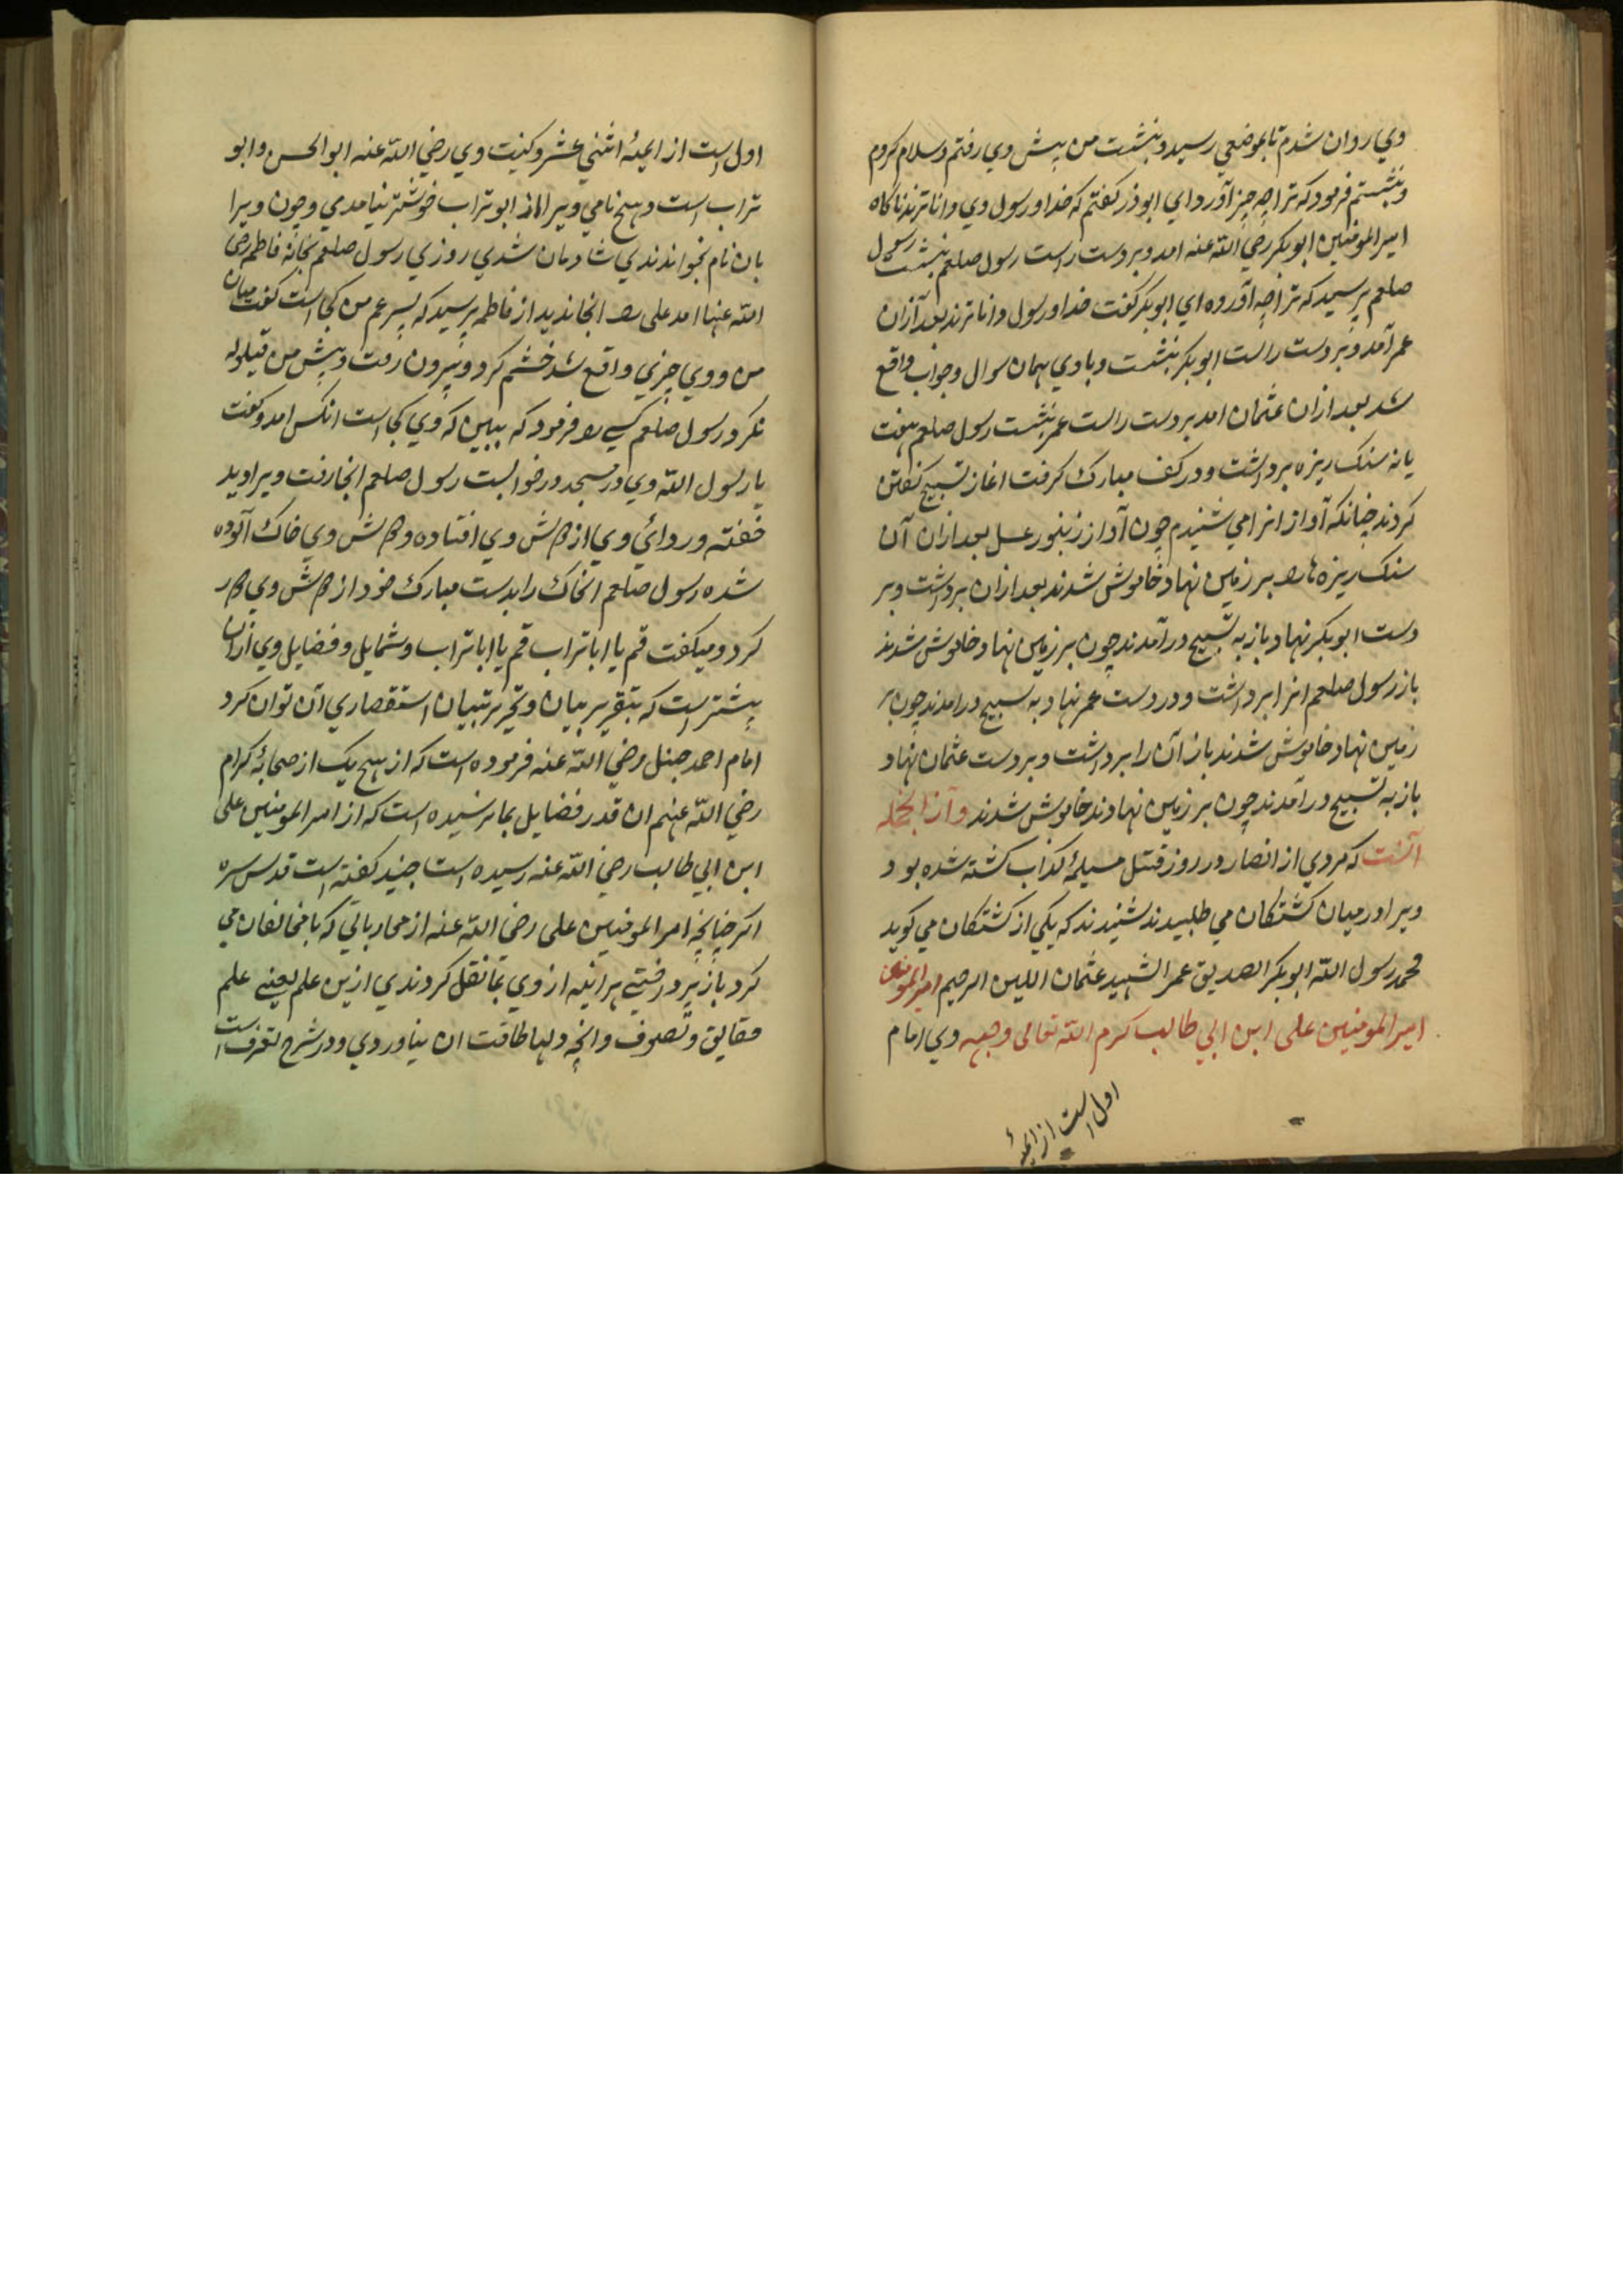 وي روان شدم تا بموضعي رسيد و بنشست من پيش وي رفتم و سلام كردم
و بنشستم فرمود كه ترا چه چيز آورد اي ابوذر كفتم كه خدا و رسول وي داناترند ناكاه
امير المومنين ابوبكر رضي الله عنه امد و بر دست راست رسول صلعم بنشست رسول
صلعم پرسيد كه ترا چه آورده اي ابوبكر كفت خدا و رسول داناترند بعد آزان
عمر آمد و بر دست راست ابوبكر بنشست و با وي همان سوال و جواب واقع
شد بعد ازان عثمان امد بر دست راست عمر بنشست رسول صلعم هفت
يا نه سنك ريزه برداشت و در كف مبارك كرفت اغاز تسبيح كفتن
كردند چنانكه آواز انرا مي شنيدم چون آواز زنبور عسل بعد ازان آن
سنك ريزه ها را بر زمين نهاد خاموش شدند بعد ازان برداشت و بر
دست ابوبكر نهاد باز به تسبيح در آمدند چون بر زمين نهاد خاموش شدند
باز رسول صلعم انرا برداشت و در دست عمر نهاد به تسبيح در امدند چون بر
زمين نهاد خاموش شدند باز آن را برداشت و بر دست عثمان نهاد
باز به تسبيح در آمدند چون بر زمين نهادند خاموش شدند و آز انجمله
آنست كه مردي از انصار در روز قتل مسيلمۀ كذاب كشته شده بود
ويرا در ميان كشتكان مي طلبيدند شنيدند كه يكي از كشتكان مي كويد
محمد رسول الله ابوبكر الصديق عمر الشهيد عثمان اللين الرحيم امير المومنين
امير المومنين على ابن ابي طالب كرم الله تعالى وجهه وي امام
اول است از ايمۀ
اول است از ايمۀ اثني عشر و كنيت وي رضي الله عنه ابو الحسن و ابو
تراب است و هيچ نامي ويرا از ابو تراب خوشتر نيامدي و چون ويرا
بان نام بخواندندي شادمان شدي روزي رسول صلعم بخانۀ فاطمه رضي
الله عنها امد على را انجا نديد از فاطمه پرسيد كه پسر عم من كجاست كفت ميان
من و وي چيزي واقع شد خشم كرد و بيرون رفت و پيش من قيلوله
نكرد رسول صلعم كسي را فرمود كه ببين كه وي كجاست انكس امد و كفت
يا رسول الله وي در مسجد در خوابست رسول صلعم انجا رفت ويرا ديد
خفته و ردائي وي از دوش وي افتاده و دوش وي خاك آلوده
شده رسول صلعم انخاك را بدست مبارك خود از دوش وي دور
كرد و ميكفت قم يا ابا تراب قم يا ابا تراب و شمايل و فضايل وي ازان
بيشتر است كه بتقرير بيان و تحرير تبيان استقصاي آن توان كرد
امام احمد حنبل رضي الله عنه فرموده است كه از هيچ يك از صحابۀ كرام
رضي الله عنهم ان قدر فضايل بما نرسيده است كه از امير المومنين على
ابن ابي طالب رضي الله عنه رسيده است جنيد كفته است قدس سره
اكر چنانچه امير المومنين على رضي الله عنه از محارباتي كه با مخالفان مي
كرد باز پرداختي هر اينه از وي بما نقل كردندي ازين علم يعني علم
حقايق و تصوف و انچه دلها طاقت ان نياوردي و در شرح تعرفست